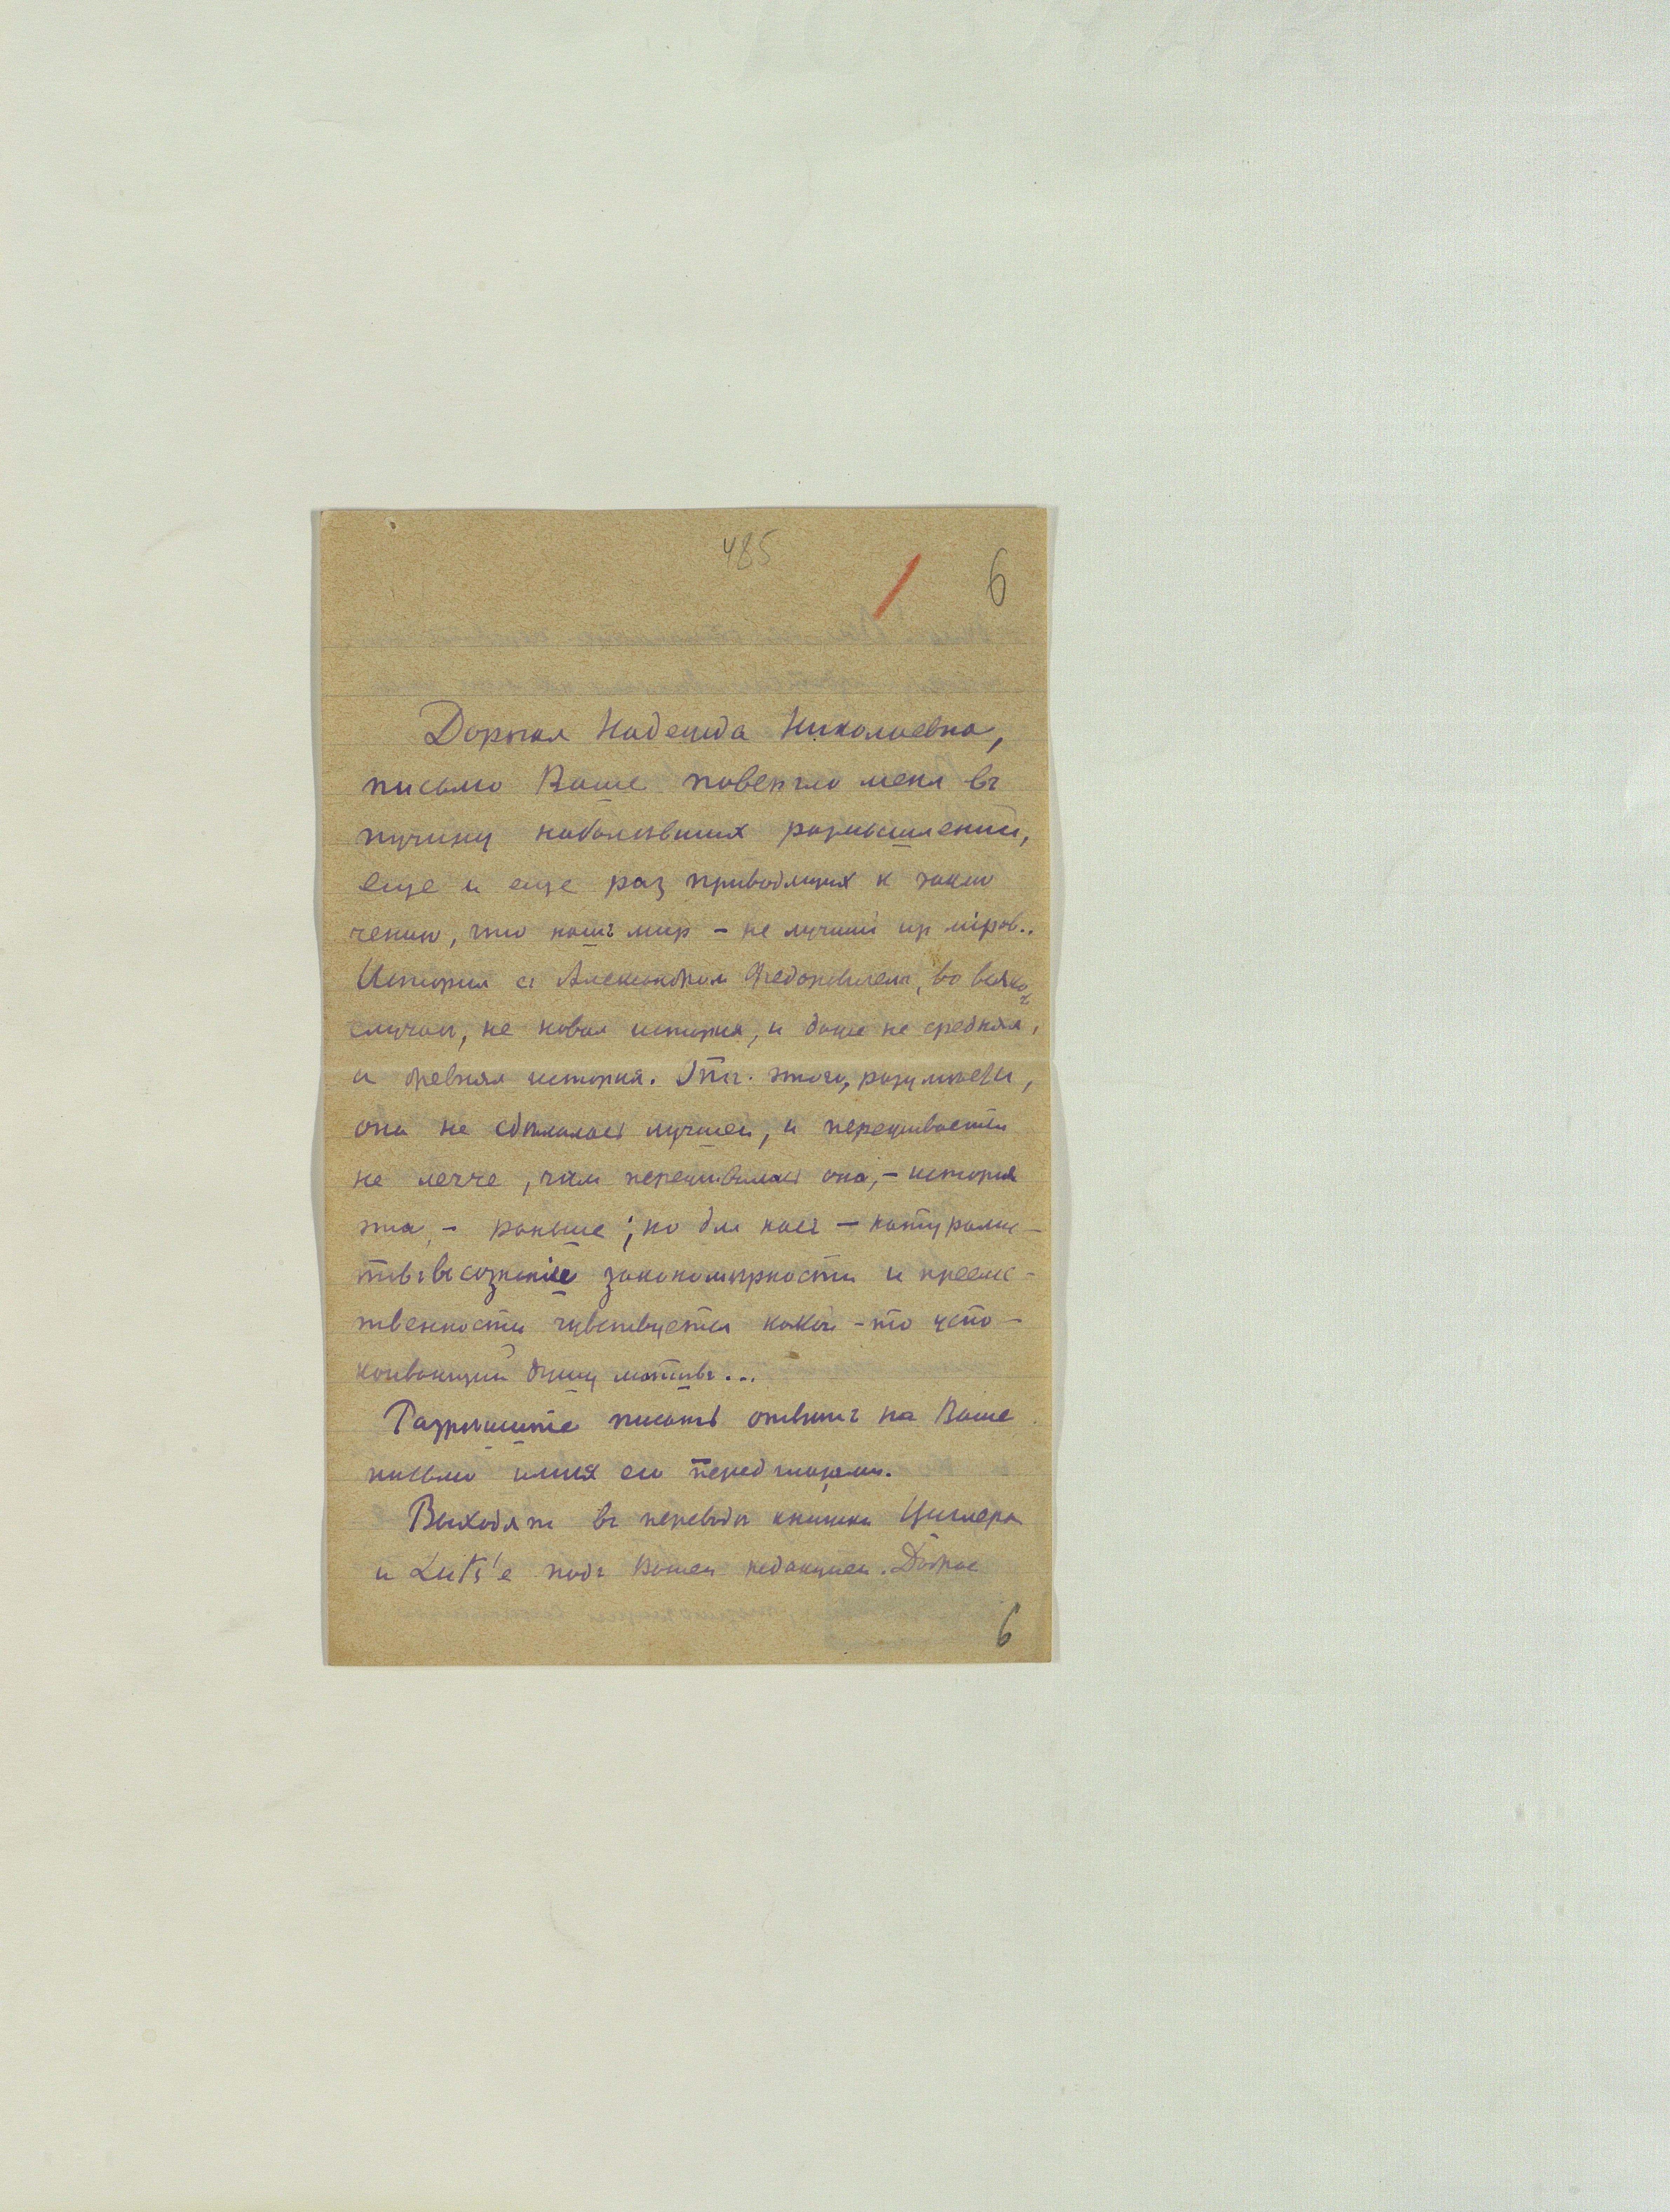 485
6
Дорогая Надежда Николаевна,
письмо Ваше повергло меня въ
пучину наболѣвших размышленій,
еще и еще раз приводящих к заклю
чению, что нашъ мир – не лучший из міров..
История съ Александром Федоровичем, во всяком
случаѣ, не новая история, и даже не средняя,
а древняя история. Отъ этого, разумѣется,
она не сдѣлалась лучшей, и переживается
не легче, чѣм переживалась она, – история
эта, – раньше; но для насъ – натуралис–
товъ въ сознаніе закономѣрности и преемс–
твенности чувствуется какой–то успо–
коивающий душу мотивъ...
Разрѣшите писать отвѣтъ на Ваше
письмо имея его перед глазами.
Выходят въ переводѣ книжки Циглера
и Luts'е подъ Вашей редакцией. Доброе
6